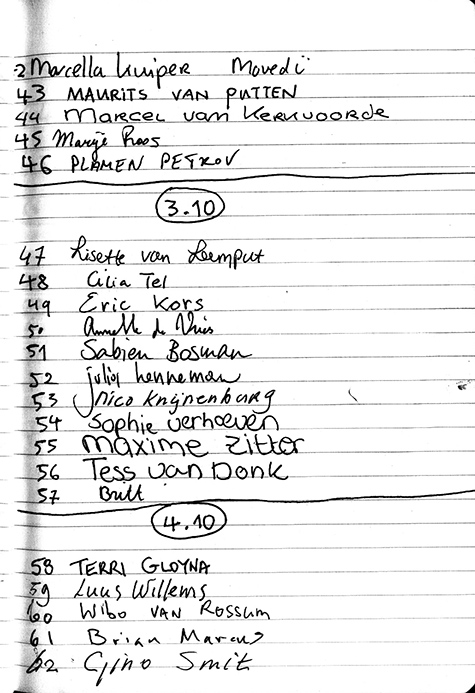 2 Marcella Kuiper Movedi
43 MAURITS VAN PUTTEN
44 Marcel van Kerkvoorde
45 Marije Roos
46 PLAMEN PETROV
3.10
47 Lisette van Leemput
48 Cilia Tel
49 Eric Kors
50 Annette de Vries
51 Sabien Bosman
52 Julia henneman
53 Nico Knijnenburg
54 Sophie verhoeven
55 Maxime Zitter
56 Tess van Donk
57 Britt
4.10
58 TERRI GLOYNA
59 Luus Willems
60 Wibo VAN ROSSUM
61 Brian Marcus
62 Gino Smit